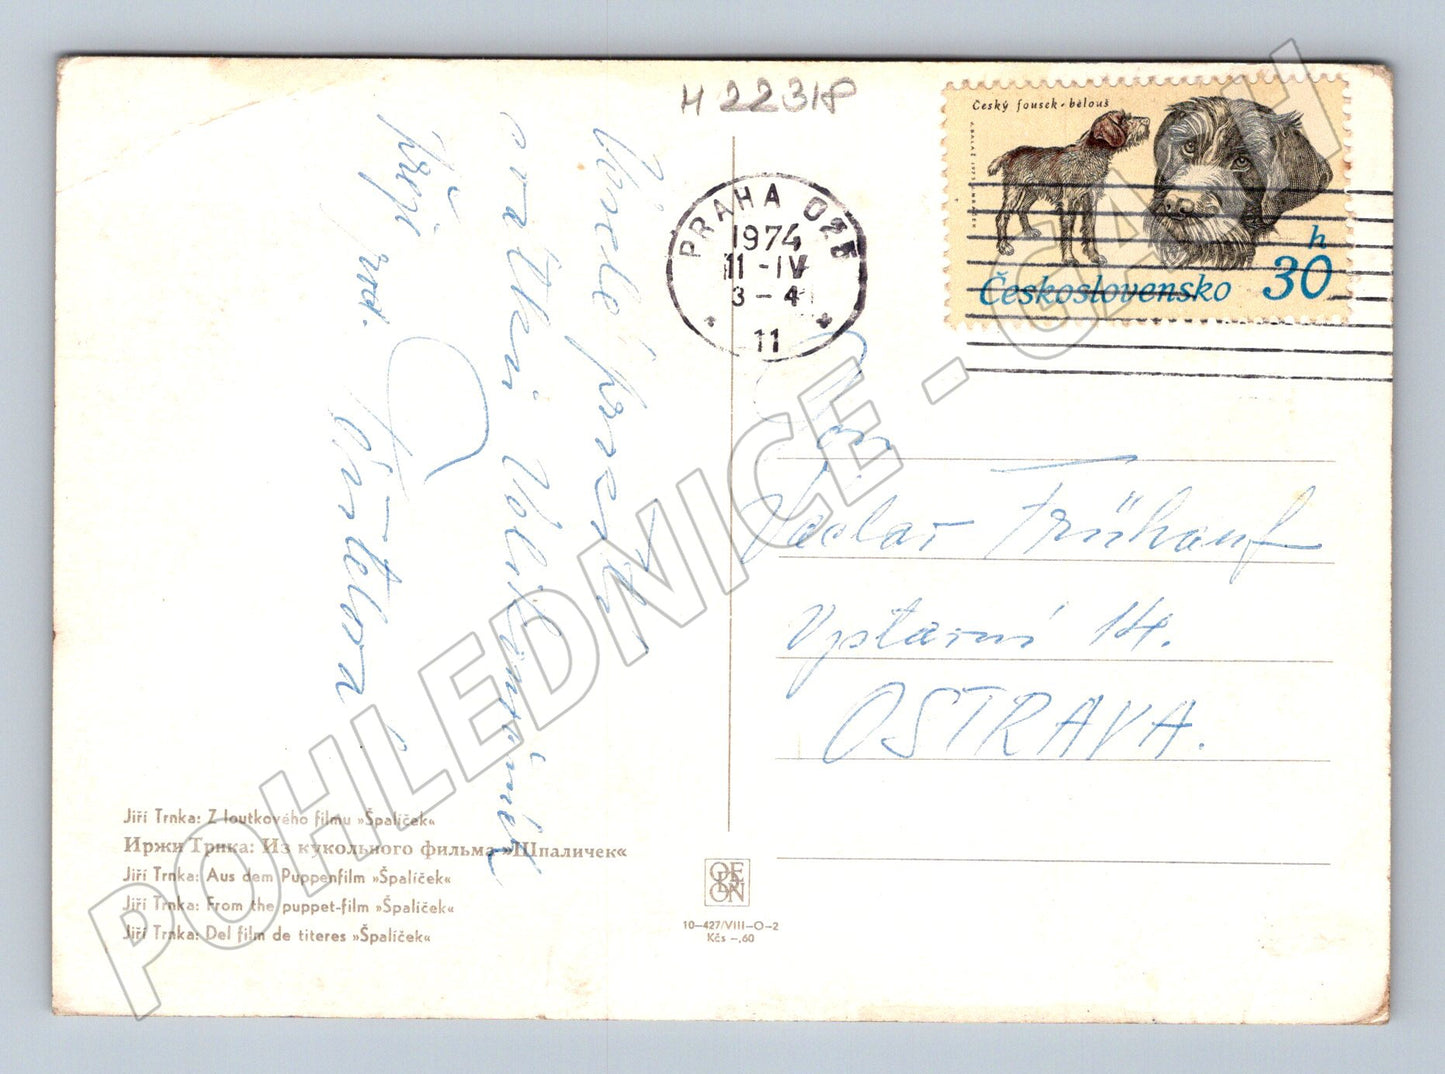 H 22318
Český fousek - bělouš
h
30
Československo
PRAHA 025
1974
11 -IV
3 - 4
11
prožití
Velikonočních
přeji
Pan
Václav Frühauf
Výstavní 14.
OSTRAVA.
Jiří Trnka: Z loutkového filmu »Špalíček«
Иржи Трнка: Из кукольного фильма »Шпаличек«
Jiří Trnka: Aus dem Puppenfilm »Špalíček«
Jiří Trnka: From the puppet-film »Špalíček«
Jiří Trnka: Del film de titeres »Špalíček«
ODEON
10-427/VIII-O-2
Kčs -,60
POHLEDNICE - GAAH